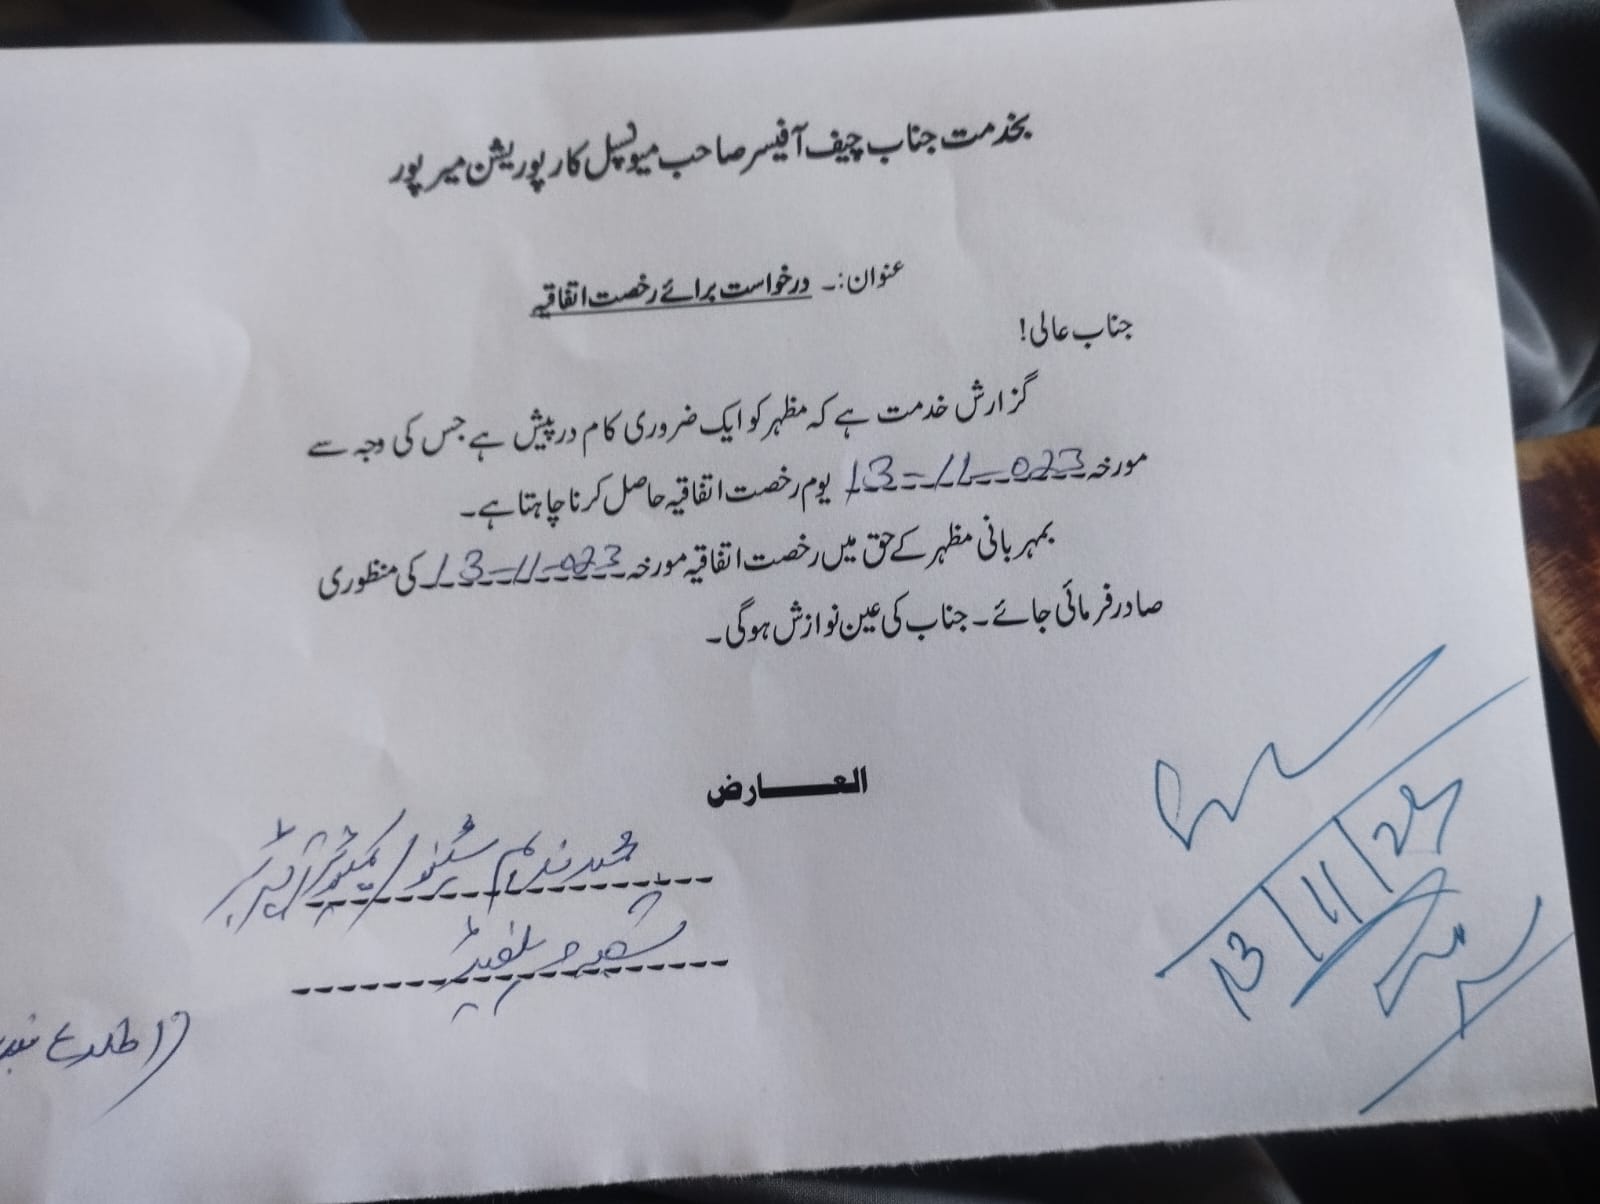 بخدمت جناب چیف آفیسر صاحب میونسپل کارپوریشن میرپور
عنوان:۔ درخواست برائے رخصت اتفاقیہ
جناب عالی!
گزارش خدمت ہے کہ مظہر کو ایک ضروری کام درپیش ہے جس کی وجہ سے
مورخہ 13-11-023 یوم رخصت اتفاقیہ حاصل کرنا چاہتا ہے۔
بمہربانی مظہر کے حق میں رخصت اتفاقیہ مورخہ 13-11-023 کی منظوری
صادر فرمائی جائے۔ جناب کی عین نوازش ہوگی۔
العارض
محمد ندیم سینئر کمپیوٹر آپریٹر
شعبہ
13/11/23